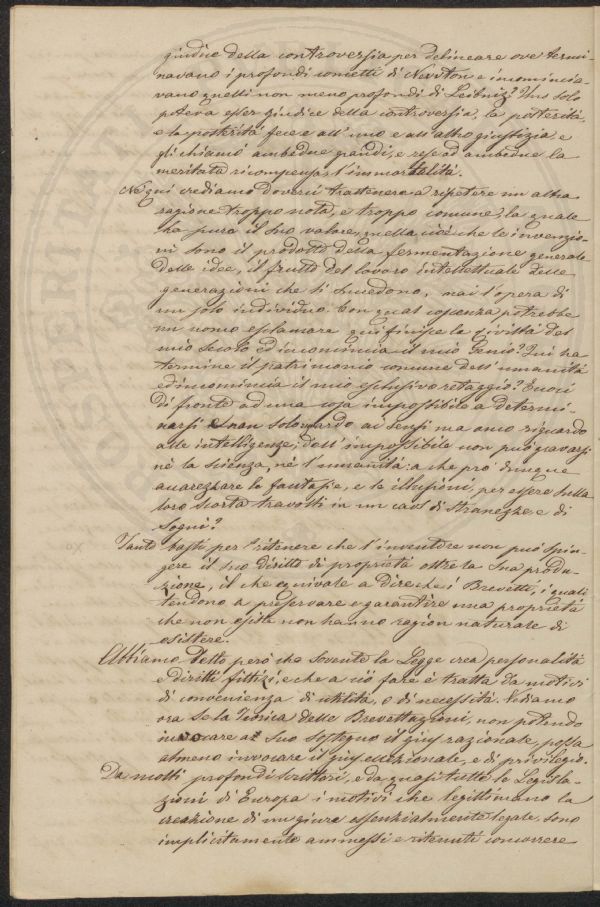 giudice della controversia per delineare ove termi-
navano i profondi concetti di Newton e incomincia-
vano quelli non meno profondi di Leibniz? Uno solo
poteva esser giudice della controversia, la posterità,
e la posterità fece e all'uno e all'altro giustizia, e
gli chiamò ambedue grandi, e rese ad ambedue la
meritata ricompensa, l'immortalità.
Nè qui crediamo doverci trattenere a ripetere un altra
ragione troppo nota, e troppo comune, la quale
ha pure il suo valore, quella cioè che le invenzio-
ni sono il prodotto della fermentazione generale
delle idee, il frutto del lavoro intellettuale delle
generazioni che si succedono, mai l'opera di
un solo individuo. Con qual coscienza potrebbe
un uomo esclamare qui finisce la civiltà del
mio Secolo ed incomincia il mio Genio? Qui ha
termine il patrimonio comune dell'umanità
ed incomincia il mio esclusivo retaggio? Eccoci
di fronte ad una cosa impossibile a determi-
narsi e non solo riguardo ai sensi ma anco riguardo
alle intelligenze; dell'impossibile non può giovarsi
nè la scienza, nè l'umanità: a che prò dunque
accarezzare le fantasie, e le illusioni, per essere sulla
loro scorta travolti in un caos di stranezze e di
sogni?
Tanto basti per ritenere che l'inventore non può spin-
gere il suo diritto di proprietà oltre la sua produ-
zione, il che equivale a dire che i Brevetti, i quali
tendono a preservare e garantire una proprietà
che non esiste non hanno region naturale di
esistere.
Abbiamo detto però che sovente la Legge crea personalità
e diritti fittizi, e che a ciò fare è tratta da motivi
di convenienza di utilità, o di necessità. Vediamo
ora se la Teorica delle Brevettazioni, non potendo
invocare al suo sostegno il gius razionale, possa
almeno invocare il gius eccezionale, e di privilegio.
Da molti profondi scrittori, e da quasi tutte le Legisla-
zioni di Europa i motivi che legittimano la
creazione di un giure essenzialmente legale, sono
implicitamente ammessi e ritenuti concorrere